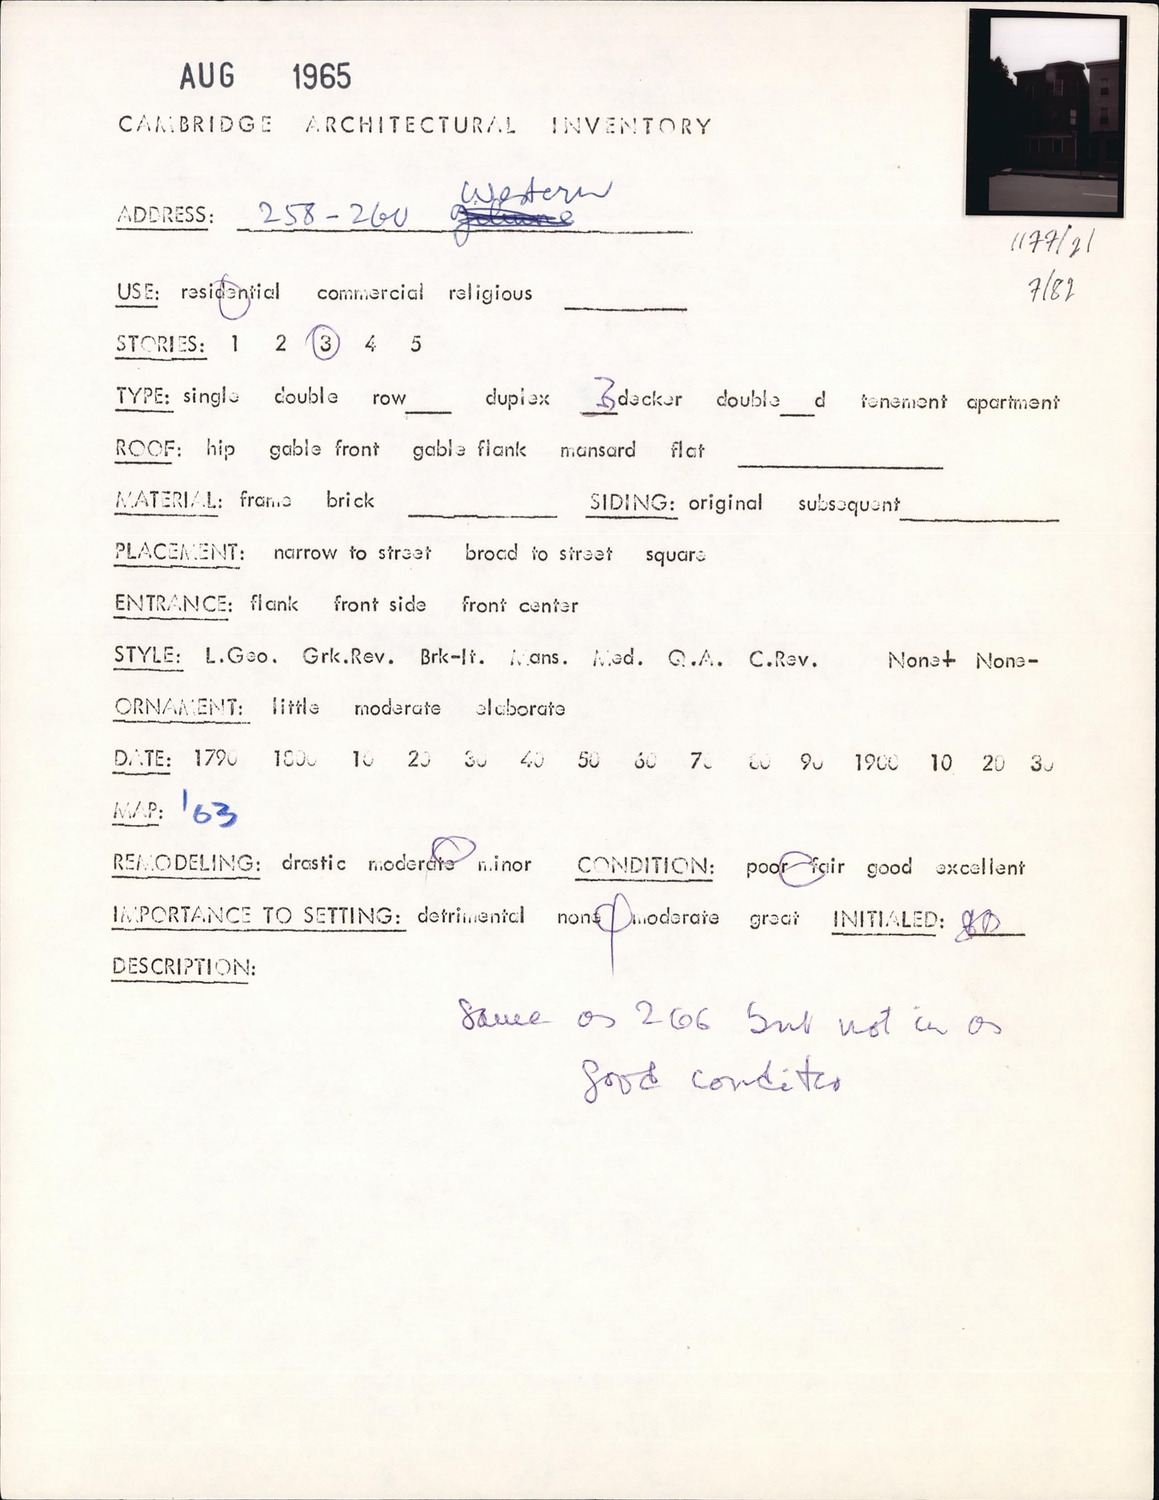 AUG 1965
CAMBRIDGE ARCHITECTURAL INVENTORY
ADDRESS: 258-260 Western
1177/21
7/82
USE: residential commercial religious
STORIES: 1 2 3 4 5
TYPE: single double row___ duplex 3 decker double___d tenement apartment
ROOF: hip gable front gable flank mansard flat
MATERIAL: frame brick SIDING: original subsequent
PLACEMENT: narrow to street broad to street square
ENTRANCE: flank front side front center
STYLE: L.Geo. Grk.Rev. Brk-It. Mans. Med. Q.A. C.Rev. None+ None-
ORNAMENT: little moderate elaborate
DATE: 1790 1800 10 20 30 40 50 60 70 80 90 1900 10 20 30
MAP: '63
REMODELING: drastic moderate minor CONDITION: poor fair good excellent
IMPORTANCE TO SETTING: detrimental none moderate great INITIALED:
DESCRIPTION:
Same as 266 but not in as
good condition